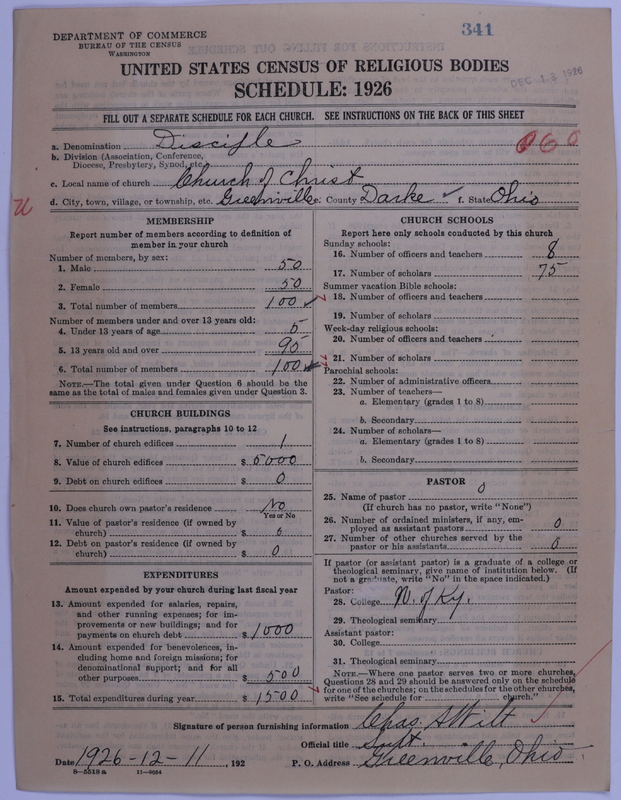 341
DEPARTMENT OF COMMERCE
BUREAU OF THE CENSUS
WASHINGTON
UNITED STATES CENSUS OF RELIGIOUS BODIES
DEC 13 1926
SCHEDULE: 1926
FILL OUT A SEPARATE SCHEDULE FOR EACH CHURCH. SEE INSTRUCTIONS ON THE BACK OF THIS SHEET
a. Denomination Disciple 060
b. Division (Association, Conference,
Diocese, Presbytery, Synod, etc.)
c. Local name of church Church of Christ
d. City, town, village, or township, etc. Greenville e. County Darke f. State Ohio
MEMBERSHIP
Report number of members according to definition of
member in your church
Number of members, by sex:
1. Male 50
2. Female 50
3. Total number of members 100
Number of members under and over 13 years old:
4. Under 13 years of age 5
5. 13 years old and over 95
6. Total number of members 100
NOTE.—The total given under Question 6 should be the
same as the total of males and females given under Question 3.
CHURCH BUILDINGS
See instructions, paragraphs 10 to 12
7. Number of church edifices 1
8. Value of church edifices $ 5000
9. Debt on church edifices $ 0
10. Does church own pastor's residence No
Yes or No
11. Value of pastor's residence (if owned by
church) $ 0
12. Debt on pastor's residence (if owned by
church) $ 0
EXPENDITURES
Amount expended by your church during last fiscal year
13. Amount expended for salaries, repairs,
and other running expenses; for im-
provements or new buildings; and for
payments on church debt $ 1000
14. Amount expended for benevolences, in-
cluding home and foreign missions; for
denominational support; and for all
other purposes $ 500
15. Total expenditures during year $ 1500
CHURCH SCHOOLS
Report here only schools conducted by this church
Sunday schools:
16. Number of officers and teachers 8
17. Number of scholars 75
Summer vacation Bible schools:
18. Number of officers and teachers
19. Number of scholars
Week-day religious schools:
20. Number of officers and teachers
21. Number of scholars
Parochial schools:
22. Number of administrative officers
23. Number of teachers—
a. Elementary (grades 1 to 8)
b. Secondary
24. Number of scholars—
a. Elementary (grades 1 to 8)
b. Secondary
PASTOR
25. Name of pastor 0
(If church has no pastor, write "None")
26. Number of ordained ministers, if any, em-
ployed as assistant pastors 0
27. Number of other churches served by the
pastor or his assistants 0
If pastor (or assistant pastor) is a graduate of a college or
theological seminary, give name of institution below. (If
not a graduate, write "No" in the space indicated.)
Pastor:
28. College of Ky.
29. Theological seminary
Assistant pastor:
30. College
31. Theological seminary
NOTE.—Where one pastor serves two or more churches,
Questions 28 and 29 should be answered only on the schedule
for one of the churches; on the schedules for the other churches,
write "See schedule for church."
Signature of person furnishing information Chas. A Wilt
Official title Supt.
Date 1926-12-11, 192 P. O. Address Greenville, Ohio
8—5518 a 11—9664